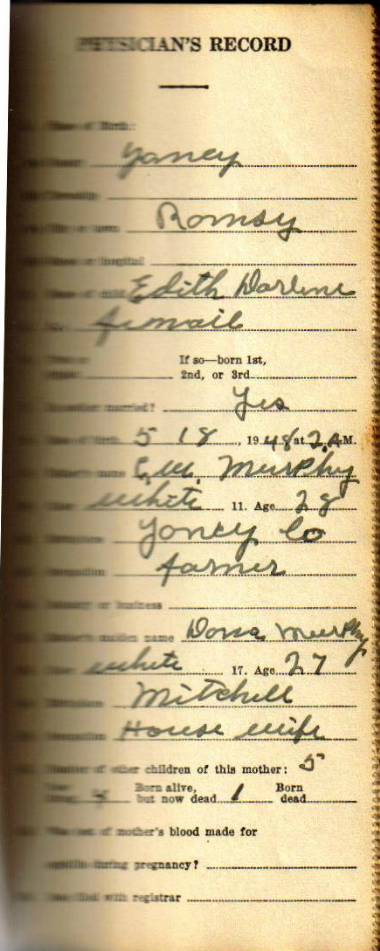 PHYSICIAN'S RECORD
of Birth:
Yancy
Romsy
or hospital
Edith Darlene
femail
If so—born 1st,
2nd, or 3rd
married? Yes
of birth 5 18, 1948 at 2 A M.
name C.W. Murphy
white 11. Age 28
Yancy Co
farmer
or business
maiden name Dova Murphy
white 17. Age 27
Mitchell
House wife
of other children of this mother: 5
4 Born alive, but now dead 1 Born dead
of mother's blood made for
during pregnancy?
with registrar